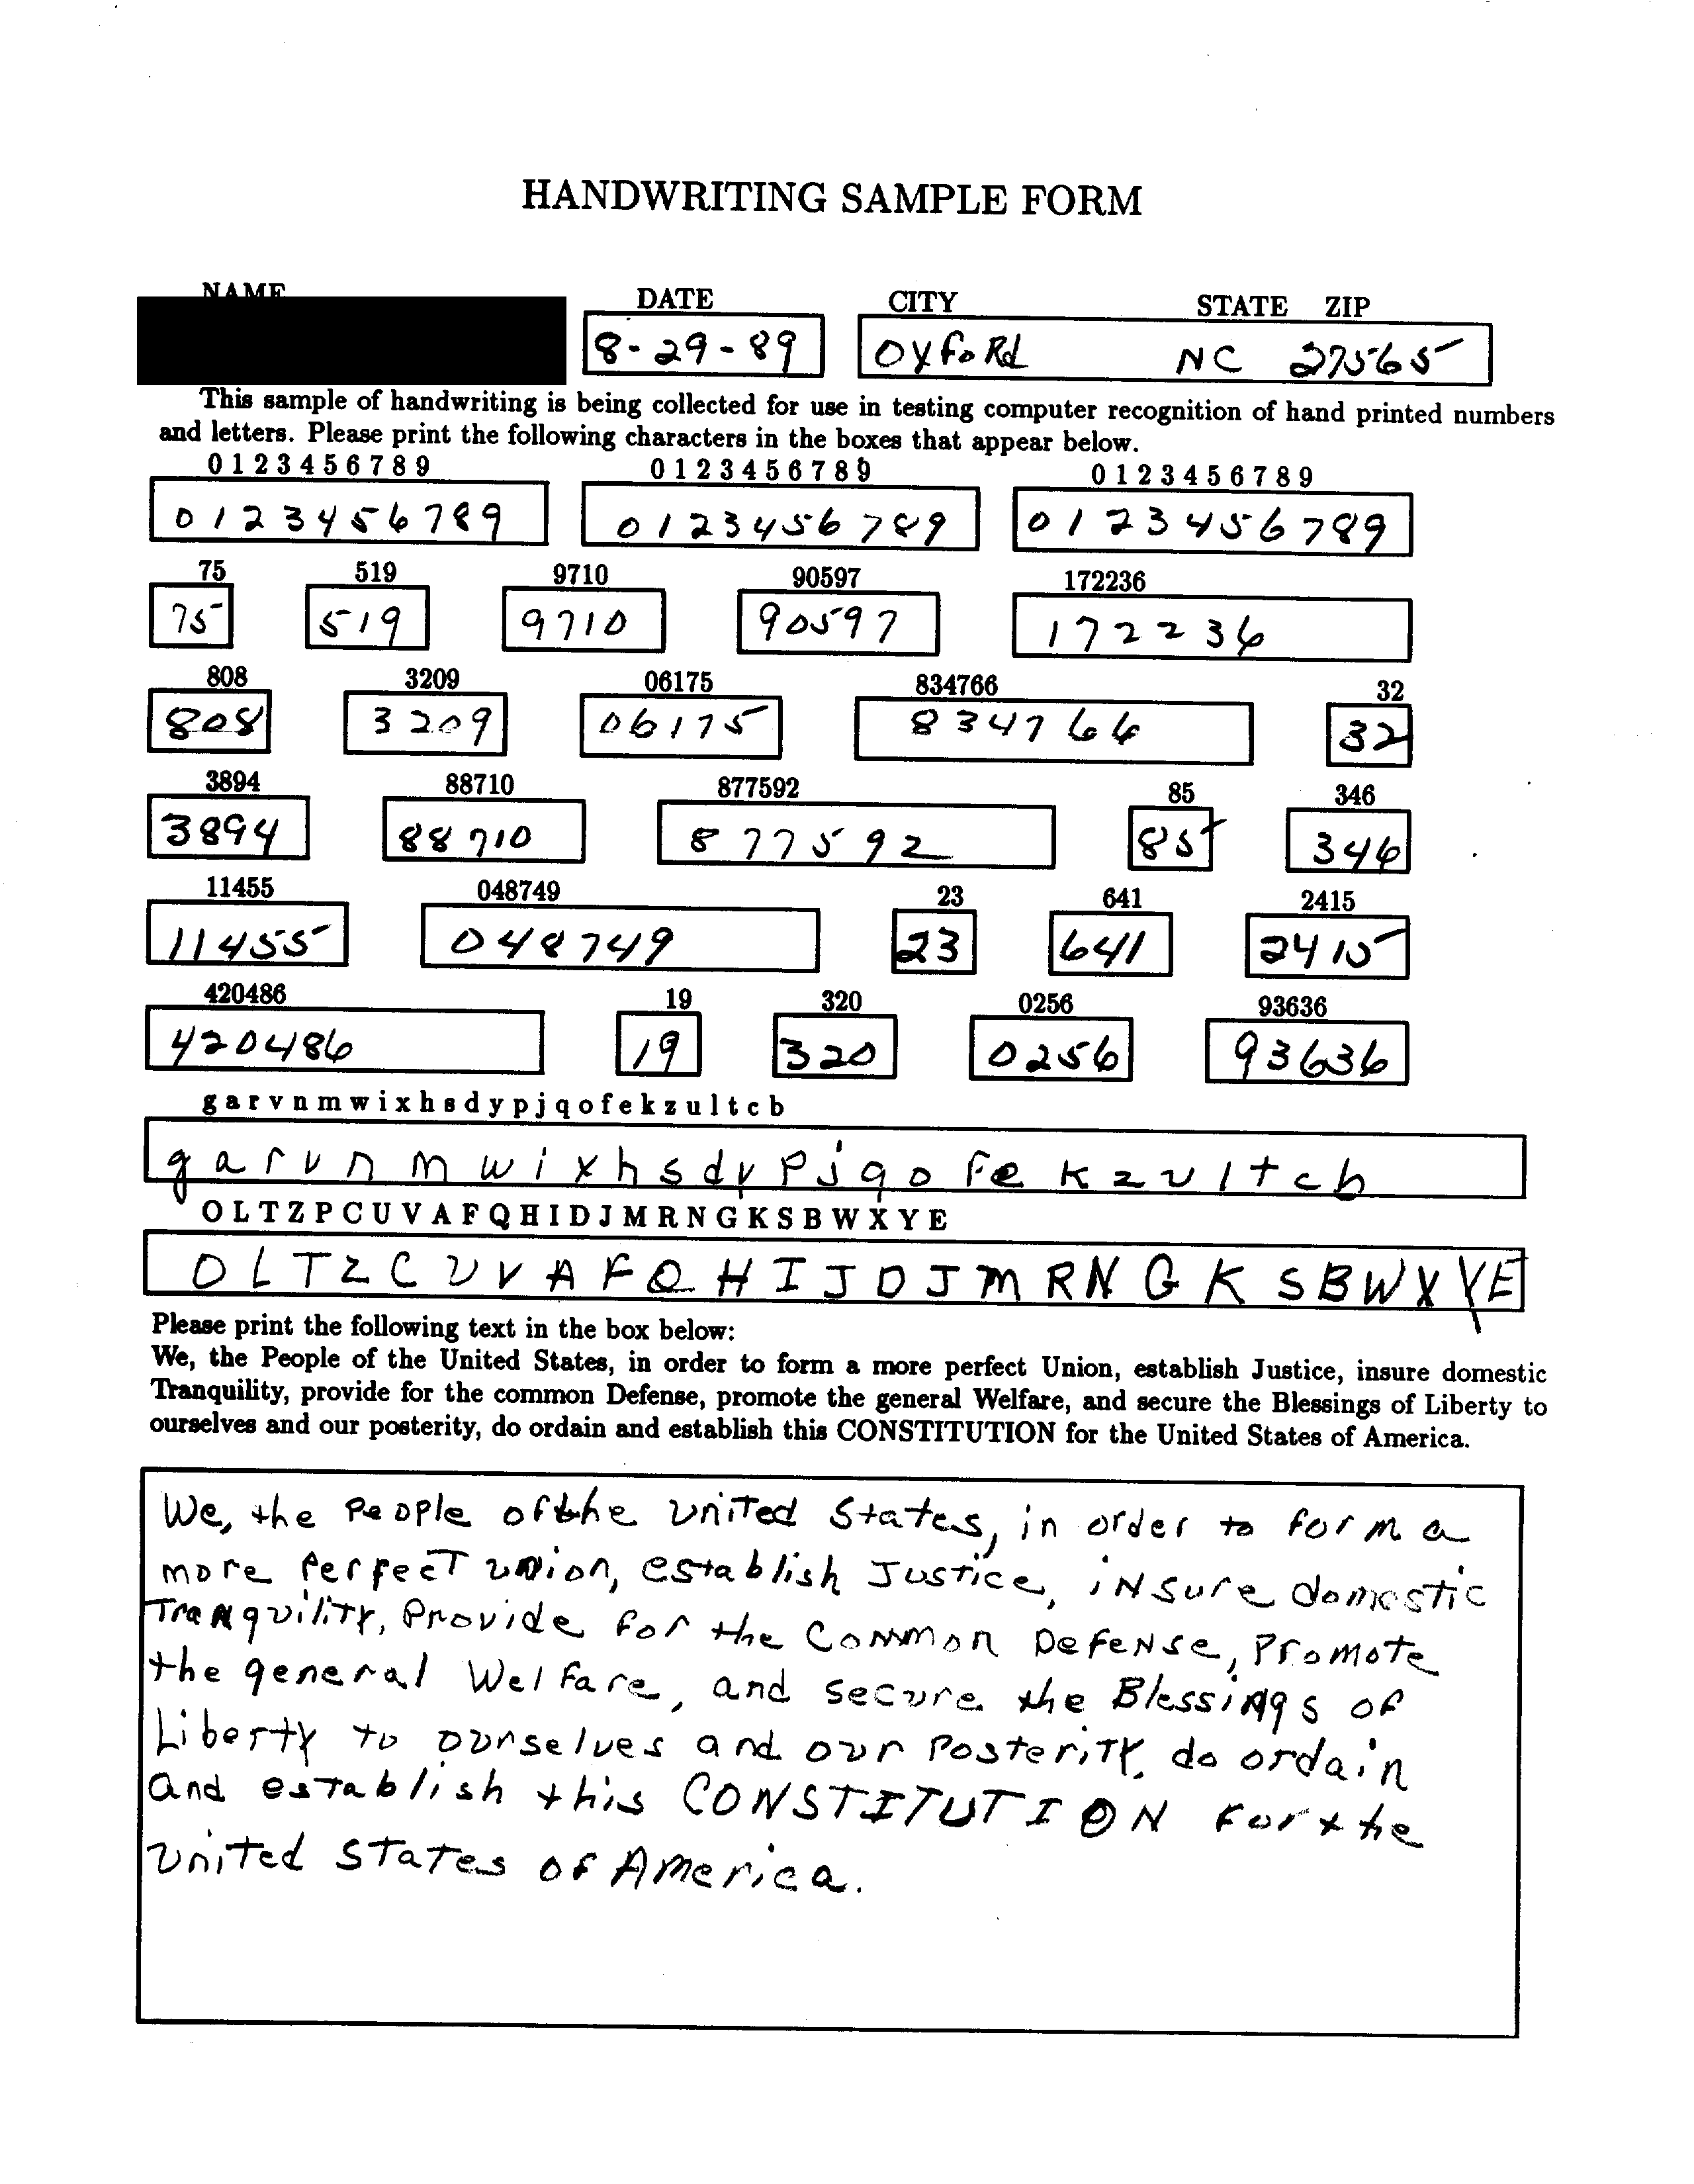 HANDWRITING SAMPLE FORM
NAME DATE CITY STATE ZIP
8-29-89 OxfoRd NC 27565
This sample of handwriting is being collected for use in testing computer recognition of hand printed numbers
and letters. Please print the following characters in the boxes that appear below.
0 1 2 3 4 5 6 7 8 9 0 1 2 3 4 5 6 7 8 9 0 1 2 3 4 5 6 7 8 9
0 1 2 3 4 5 6 7 8 9 0 1 2 3 4 5 6 7 8 9 0 1 2 3 4 5 6 7 8 9
75 519 9710 90597 172236
75 519 9710 90597 172236
808 3209 06175 834766 32
808 3209 06175 834766 32
3894 88710 877592 85 346
3894 88710 877592 85 346
11455 048749 23 641 2415
11455 048749 23 641 2415
420486 19 320 0256 93636
420486 19 320 0256 93636
g a r v n m w i x h s d y p j q o f e k z u l t c b
g a r v n m w i x h s d y p j q o f e k z u l t c b
O L T Z P C U V A F Q H I D J M R N G K S B W X Y E
O L T Z C U V A F Q H I J D J M R N G K S B W X Y E
Please print the following text in the box below:
We, the People of the United States, in order to form a more perfect Union, establish Justice, insure domestic
Tranquility, provide for the common Defense, promote the general Welfare, and secure the Blessings of Liberty to
ourselves and our posterity, do ordain and establish this CONSTITUTION for the United States of America.
We, the People of the United States, in order to form a
more perfect union, establish Justice, iNsure domestic
TraNquility, Provide for the Common Defense, Promote
the general Welfare, and secure the Blessings of
Liberty to ourselves and our Posterity, do ordain
and establish this CONSTITUTION for the
United States of America.